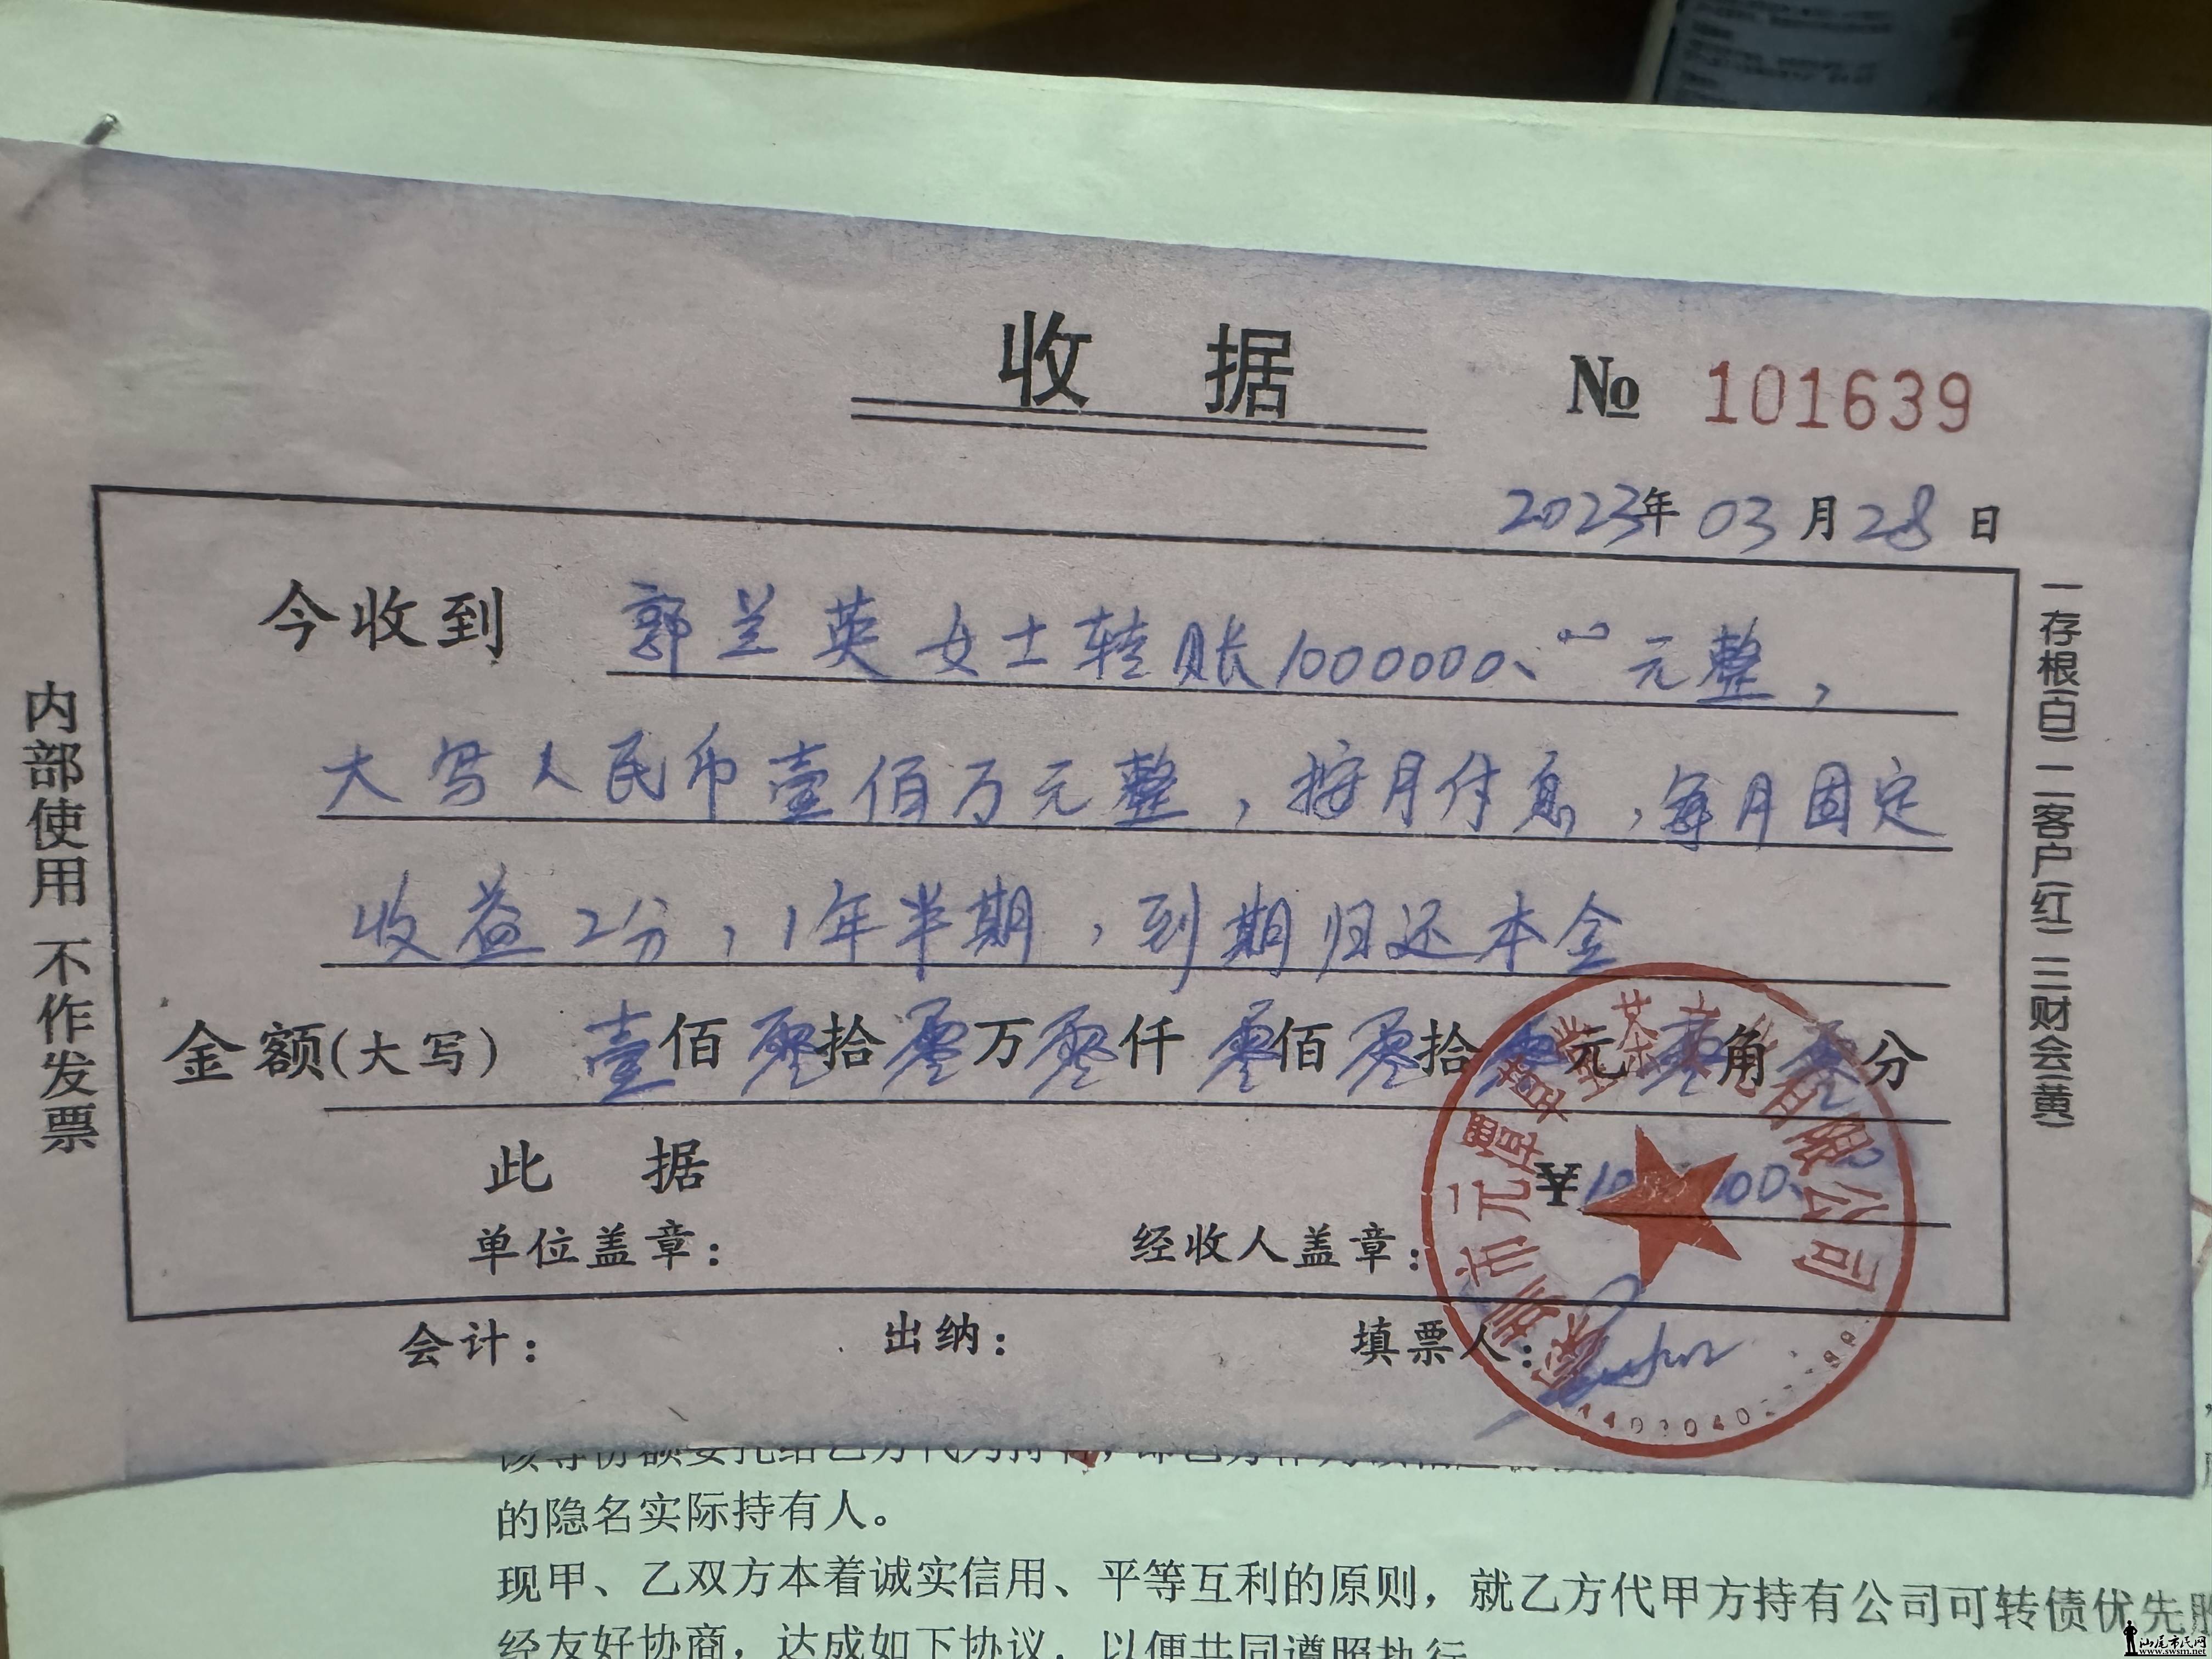 收 据
№ 101639
2023年 03 月 28 日
今收到 郭兰英女士转账1000000、00元整，
大写人民币壹佰万元整，按月付息，每月固定
收益2分，1年半期，到期归还本金
金额(大写) 壹佰零拾零万零仟零佰零拾零元零角零分
此 据
单位盖章：
经收人盖章：
会计：
出纳：
填票人：
内部使用 不作发票
一存根(白) 二客户(红) 三财会(黄)
有限公司
的隐名实际持有人。
现甲、乙双方本着诚实信用、平等互利的原则，就乙方代甲方持有公司可转债优先股
经友好协商，达成如下协议，以便共同遵照执行
汕尾市民网
www.swsm.net